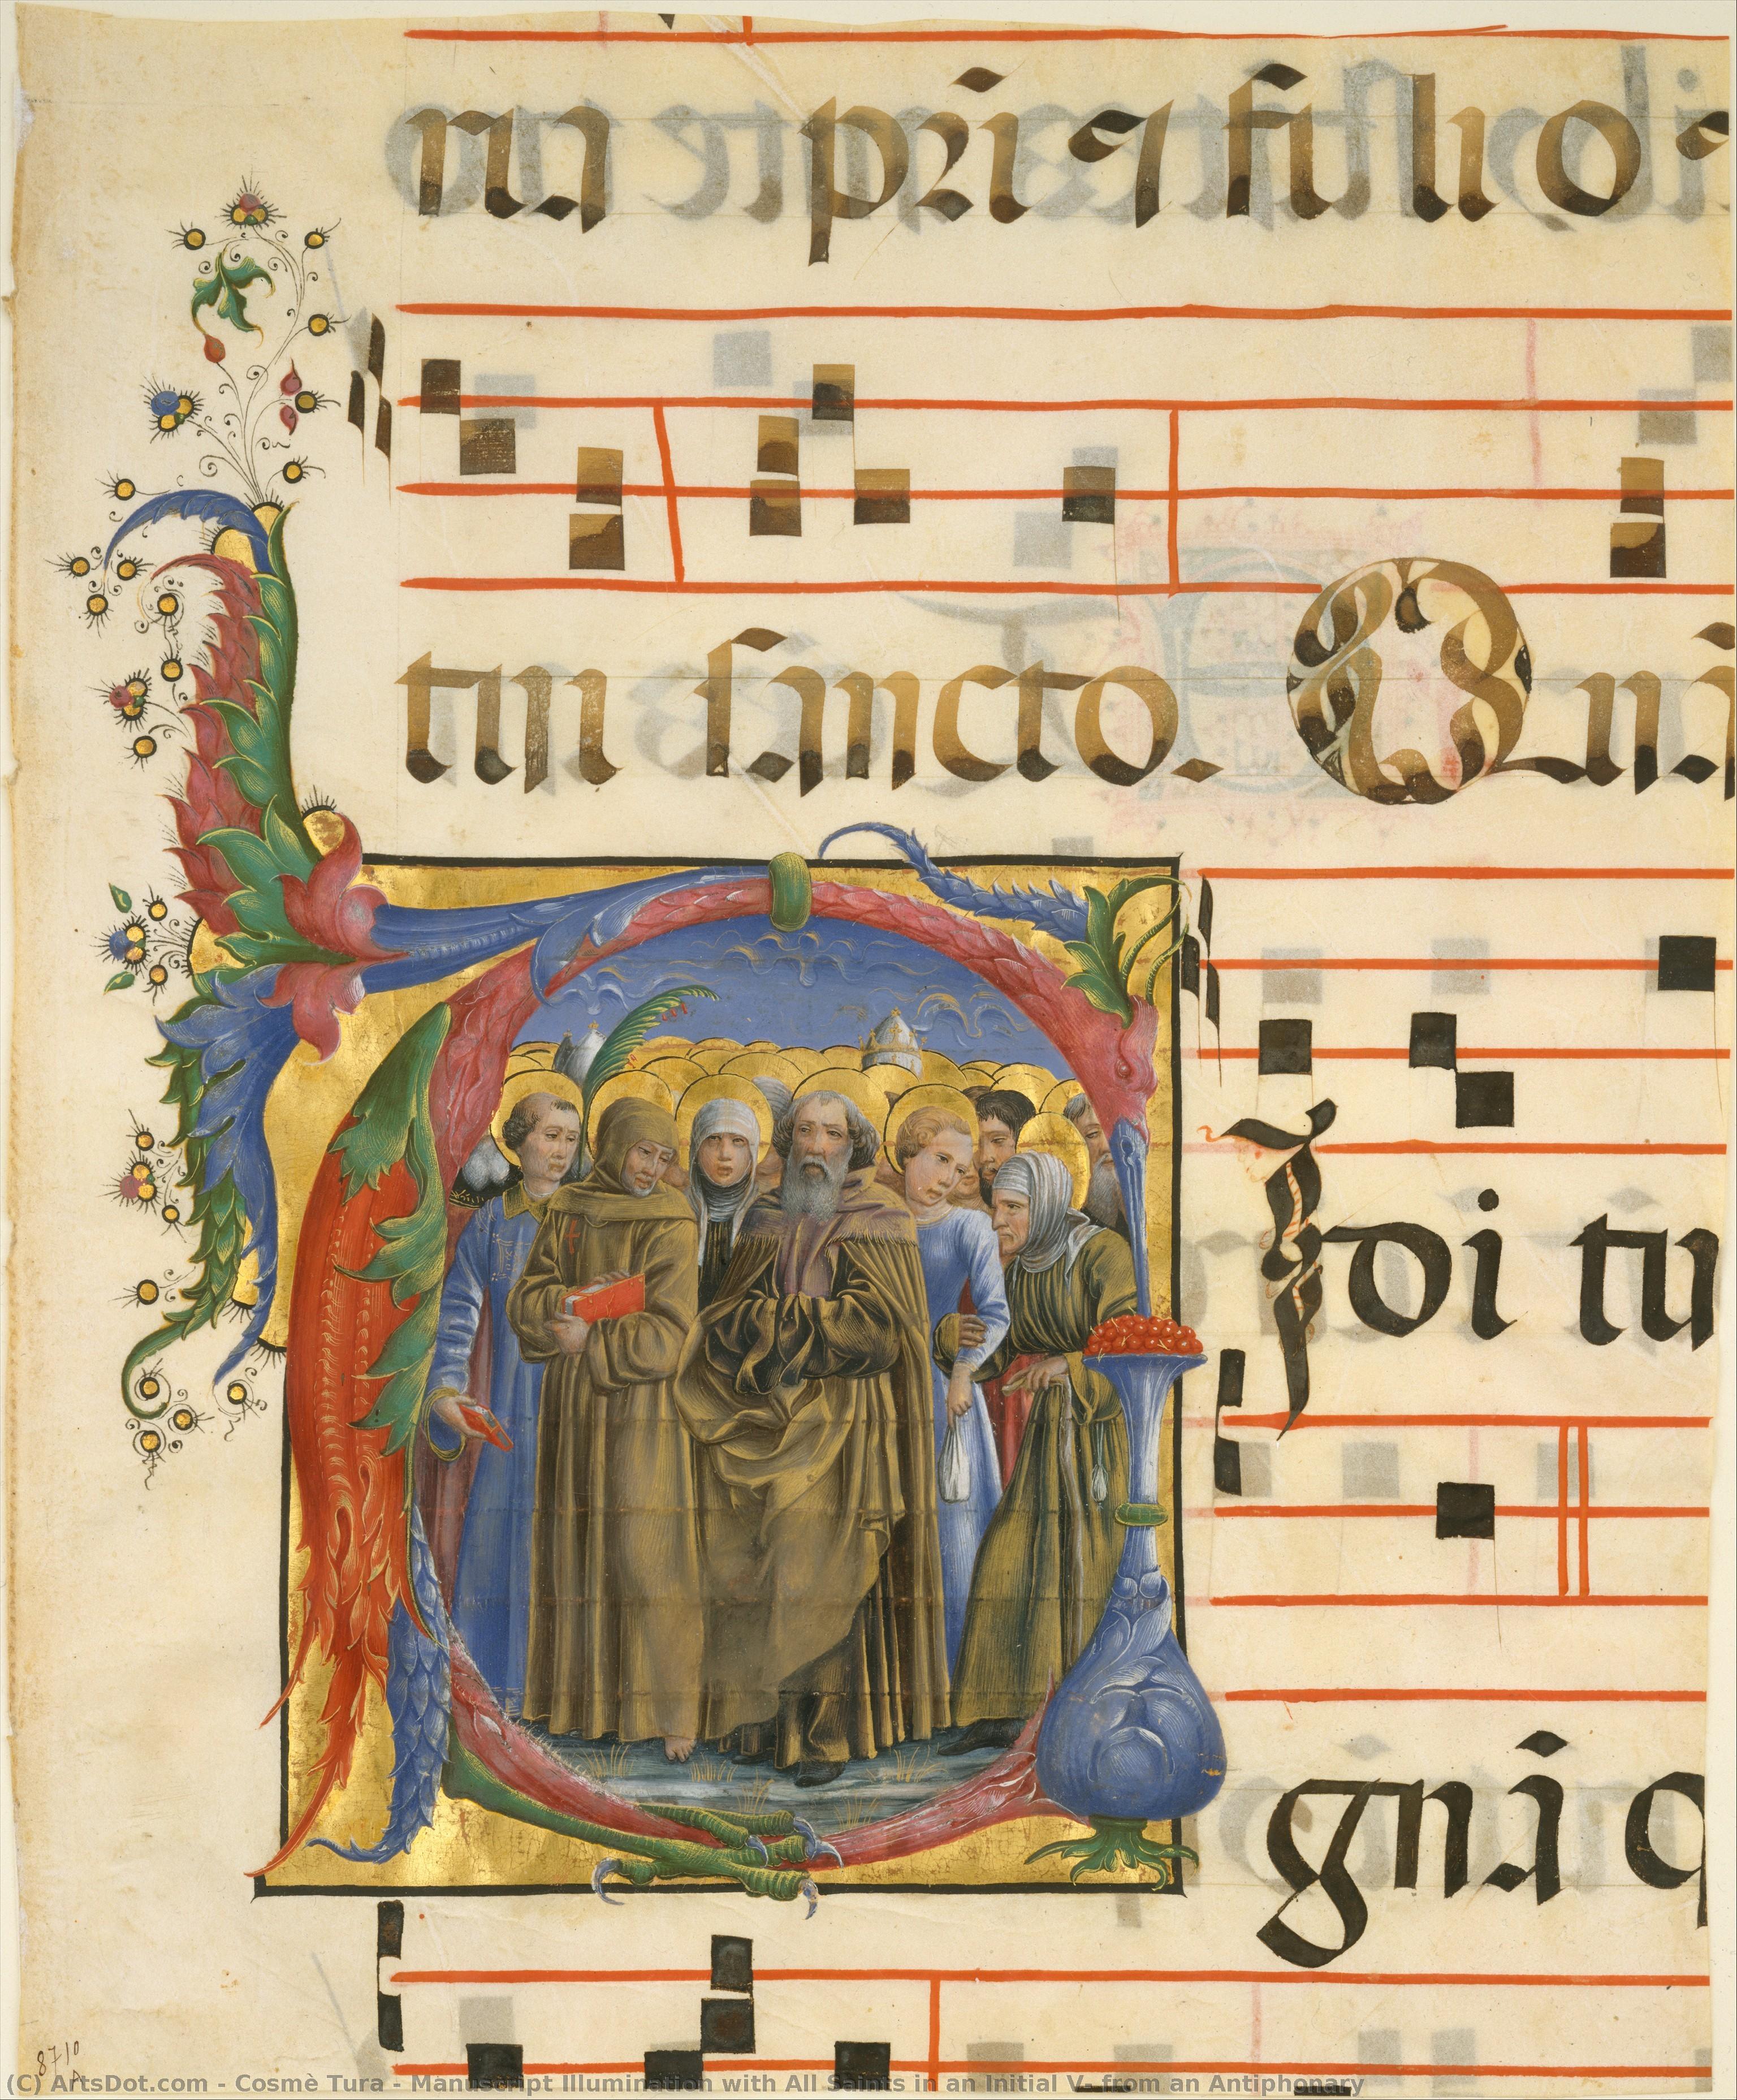 ria pr̄i ⁊ filio ⁊
tui sancto. Quā
Idi tu
gnā q
8710
A
(C) ArtsDot.com - Cosmè Tura - Manuscript Illumination with All Saints in an Initial V- from an Antiphonary